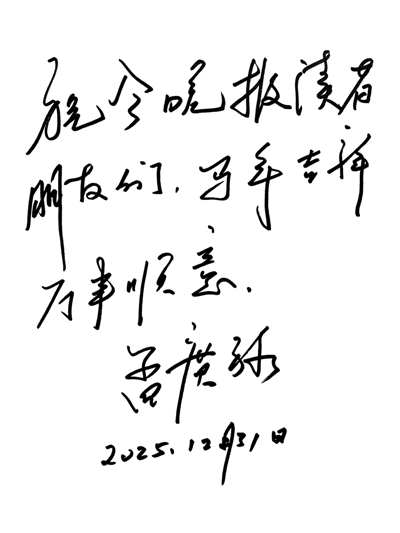 祝今晚报读者
朋友们,马年吉祥
万事顺意.
2025.12月31日